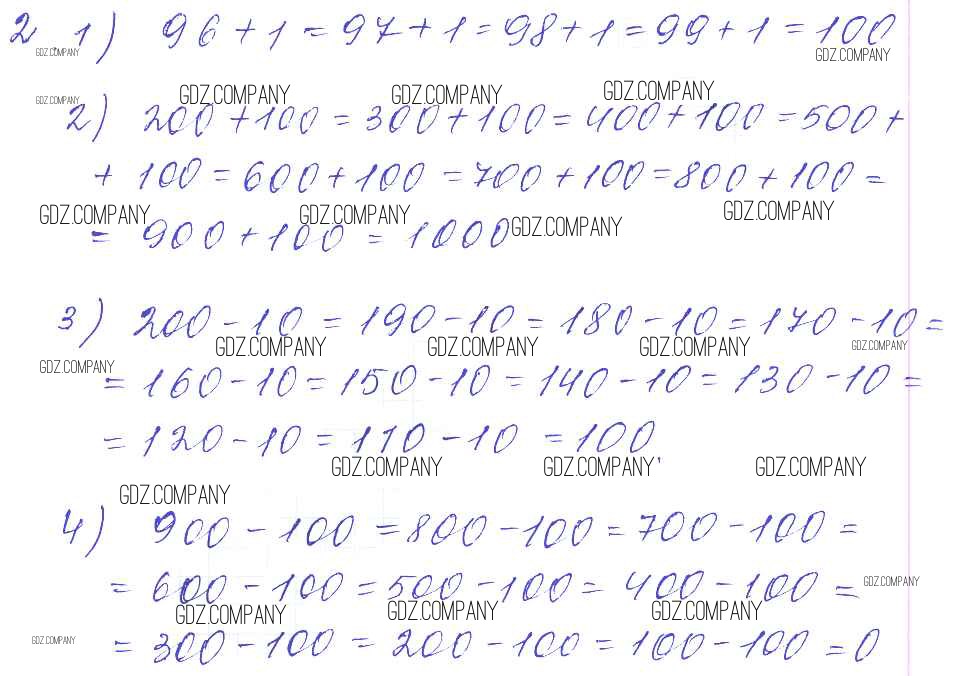 2. 1) 96 + 1 = 97 + 1 = 98 + 1 = 99 + 1 = 100
GDZ.COMPANY GDZ.COMPANY
GDZ.COMPANY GDZ.COMPANY GDZ.COMPANY GDZ.COMPANY
2) 200 + 100 = 300 + 100 = 400 + 100 = 500 +
+ 100 = 600 + 100 = 700 + 100 = 800 + 100 =
GDZ.COMPANY GDZ.COMPANY GDZ.COMPANY GDZ.COMPANY
= 900 + 100 = 1000
3) 200 - 10 = 190 - 10 = 180 - 10 = 170 - 10 =
GDZ.COMPANY GDZ.COMPANY GDZ.COMPANY GDZ.COMPANY
GDZ.COMPANY
= 160 - 10 = 150 - 10 = 140 - 10 = 130 - 10 =
= 120 - 10 = 110 - 10 = 100
GDZ.COMPANY GDZ.COMPANY GDZ.COMPANY
GDZ.COMPANY
4) 900 - 100 = 800 - 100 = 700 - 100 =
= 600 - 100 = 500 - 100 = 400 - 100 =
GDZ.COMPANY
GDZ.COMPANY GDZ.COMPANY GDZ.COMPANY
GDZ.COMPANY
= 300 - 100 = 200 - 100 = 100 - 100 = 0